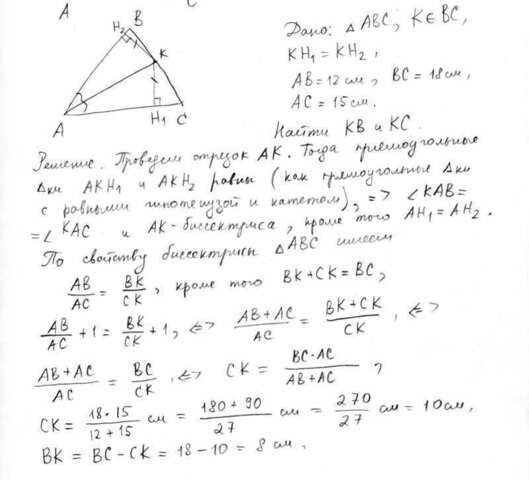 A
C
B
H₂
K
A
H₁
C
Дано: △ ABC; K∈BC,
KH₁ = KH₂,
AB = 12 см, BC = 18 см,
AC = 15 см.
Найти KB и KC.
Решение. Проведем отрезок AK. Тогда прямоугольные
Δки AKH₁ и AKH₂ равны (как прямоугольные Δки
с равными гипотенузой и катетом), => ∠KAB=
=∠KAC и AK - биссектриса, кроме того AH₁ = AH₂.
По свойству биссектрисы △ABC имеем
AB/AC = BK/CK, кроме того BK+CK=BC,
AB/AC + 1 = BK/CK + 1, <=> (AB+AC)/AC = (BK+CK)/CK, <=>
(AB+AC)/AC = BC/CK, <=> CK = (BC·AC)/(AB+AC),
CK = (18·15)/(12+15) см = (180+90)/27 см = 270/27 см = 10 см,
BK = BC - CK = 18 - 10 = 8 см.